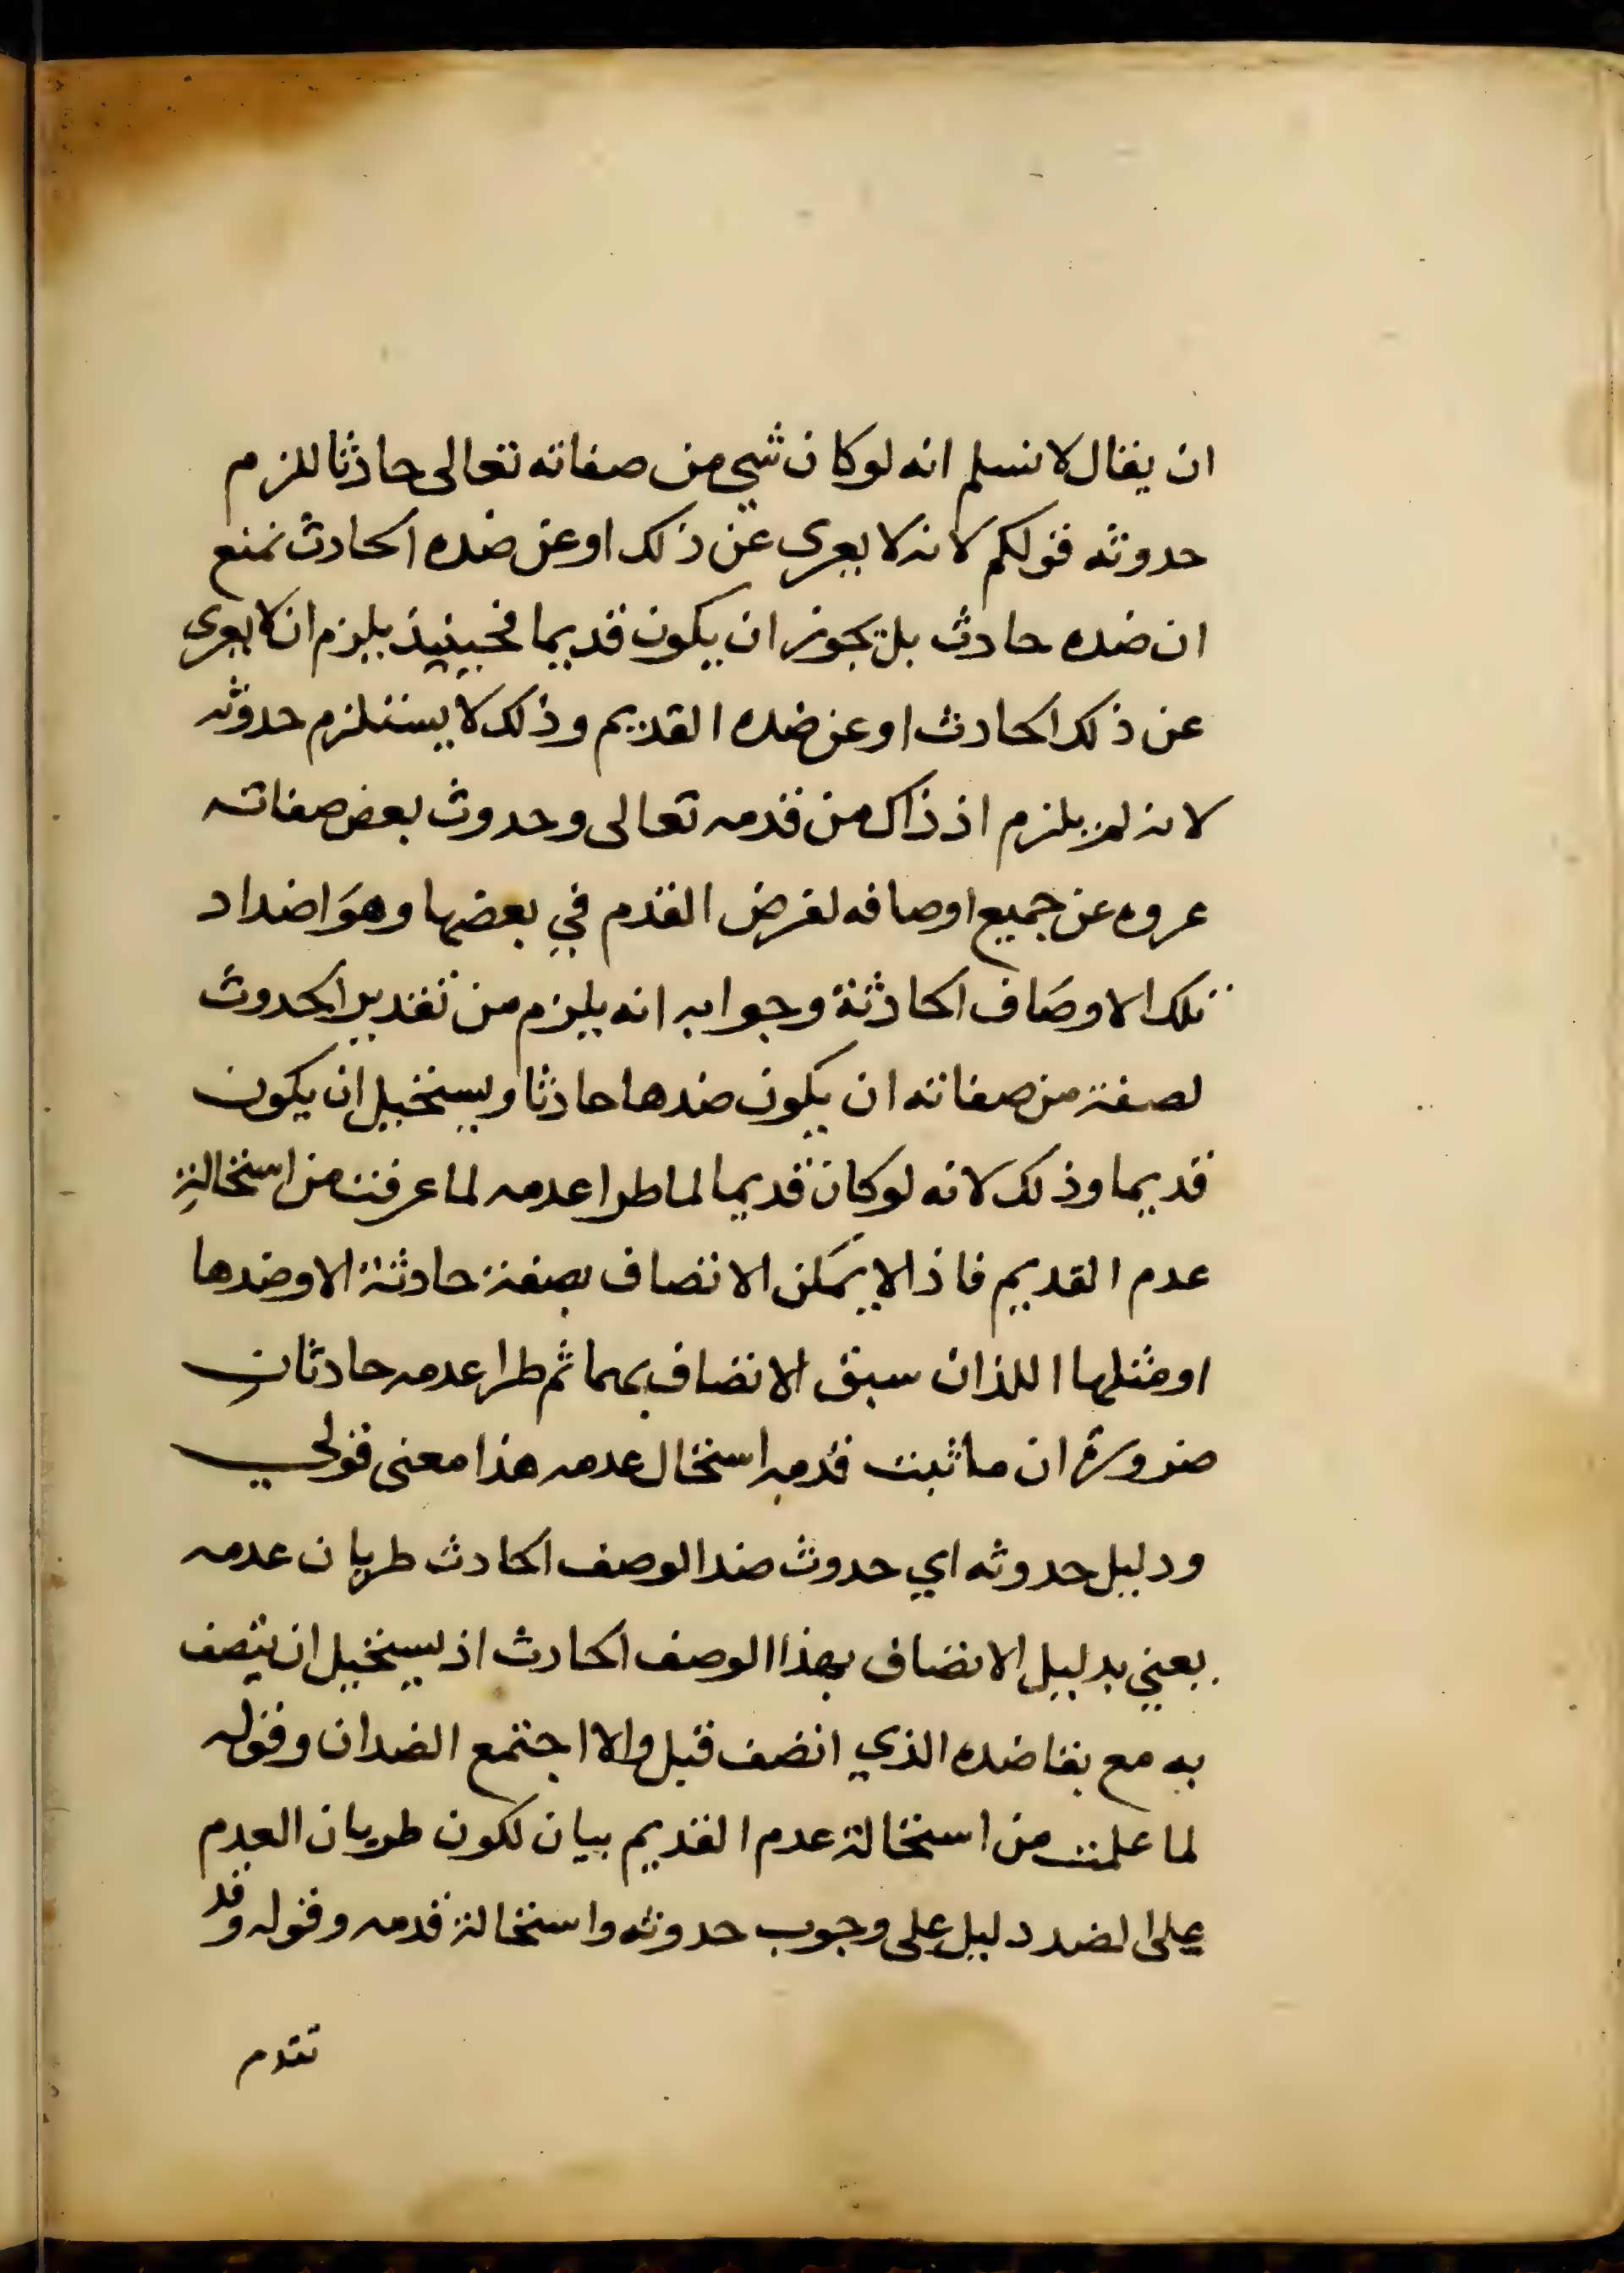 ان يقال لا نسلم انه لو كان شي من صفاته تعالى حادثا للزم
حدوثه قولكم لانه لا يعرى عن ذلك او عن ضده الحادث نمنع
ان ضده حادث بل يجوز ان يكون قديما فحينيذ يلزم ان لا يعرى
عن ذلك الحادث او عن ضده القديم وذلك لا يستلزم حدوثه
لانه لم يلزم اذ ذاك من قدمه تعالى وحدوث بعض صفاته
عروه عن جميع اوصافه لفرض القدم في بعضها وهو اضداد
تلك الاوصاف الحادثة وجوابه انه يلزم من تقدير الحدوث
لصفة من صفاته ان يكون ضدها حادثا ويستحيل ان يكون
قديما وذلك لانه لو كان قديما لما طرا عدمه لما عرفت من استحالة
عدم القديم فاذا لا يمكن الاتصاف بصفة حادثة الا وضدها
او مثلها اللذان سبق الاتصاف بهما ثم طرا عدمه حادثان
ضرورة ان ما ثبت قدمه استحال عدمه هذا معنى قولي
ودليل حدوثه اي حدوث ضد الوصف الحادث طريان عدمه
يعني بدليل الاتصاف بهذا الوصف الحادث اذ يستحيل ان يتصف
به مع بقا ضده الذي اتصف قبل والا اجتمع الضدان وقوله
لما علمت من استحالة عدم القديم بيان لكون طريان العدم
على الضد دليل على وجوب حدوثه واستحالة قدمه وقوله وقد
تقدم